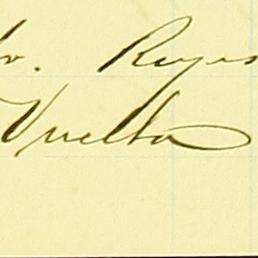 Reyes
Vuelta